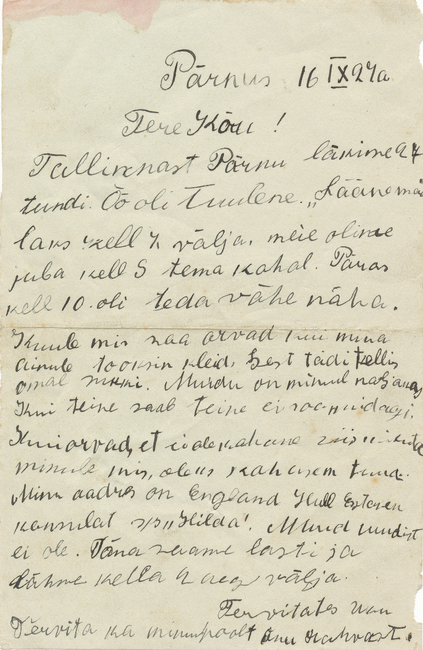 Pärnus 16 IX 27a.
Tere Kõu!
Tallinnast Pärnu läksime 27
tundi. Öö oli Tuulene. „Läänema
laks kell 7 välja, meie olime
juba kell 5 tema kohal. Pärast
kell 10 oli teda vähe näha.
Kuule mis saa arvad kui mina
ainule tooksin kleidi, Sest tädi tellis
omal Muidu on minul naljanas
Kui teine saab teine ei saa midagi.
Kui arvad, et ei ole kahane siis
minule mis, oleks kahasem tuua.
Minu aadres on England Hull Estonien
konsulat s/s „Hilda". Muud uudist
ei ole. Täna saame lasti ja
Lähme kella 4 aeg välja.
Tervitates
Tervita ka minupoolt oma rahvast.